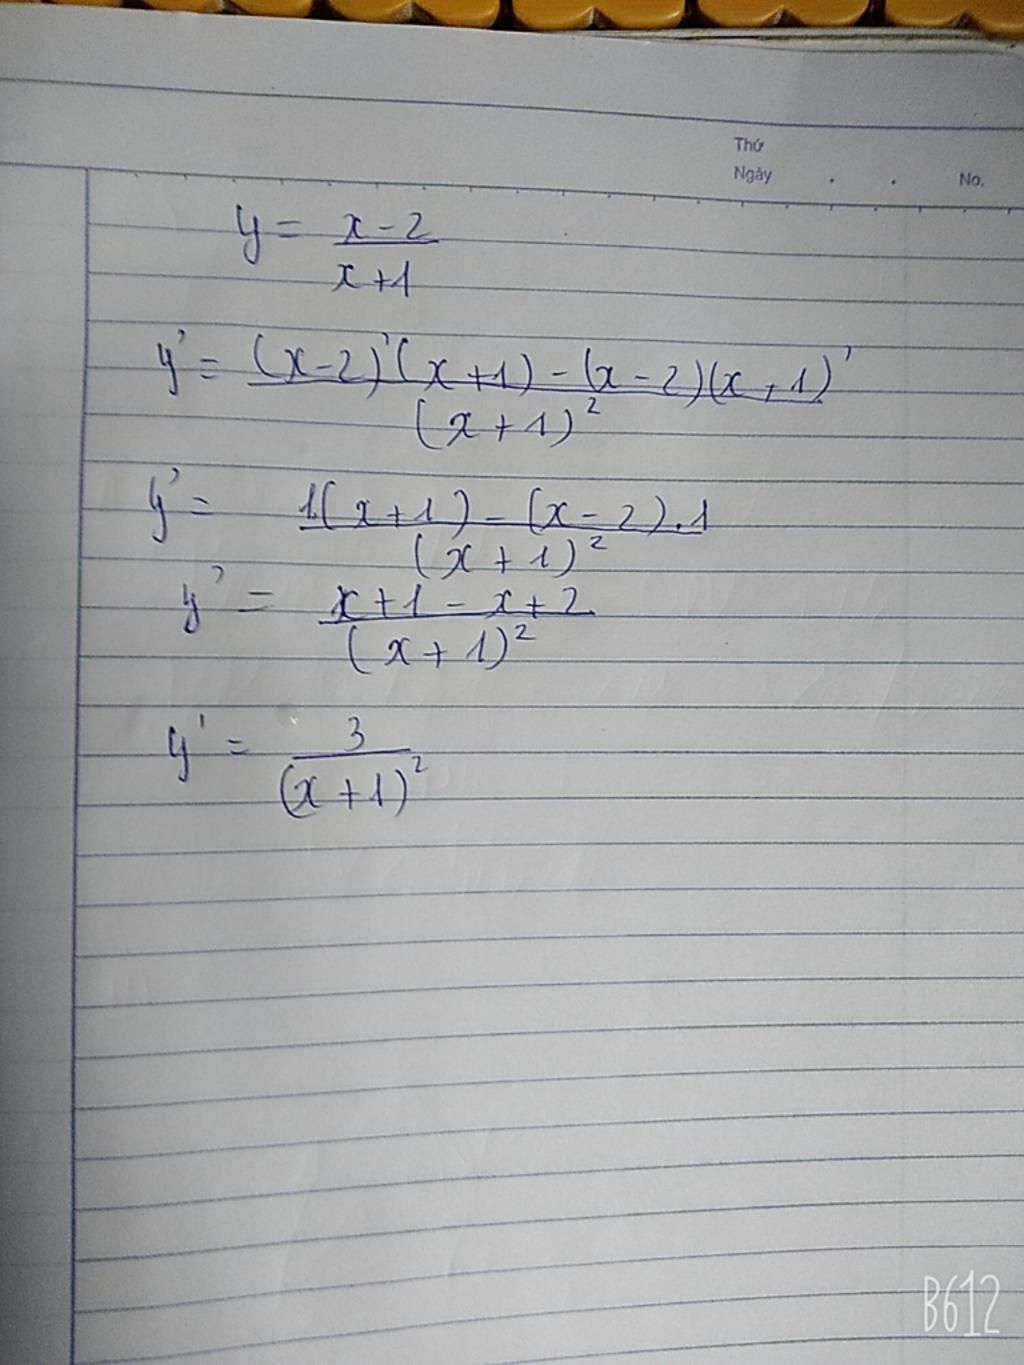 Thứ
Ngày . . No.
y = x-2
x+1
y' = (x-2)'(x+1)-(x-2)(x+1)'
(x+1)²
y' = 1.(x+1)-(x-2).1
(x+1)²
y' = x+1-x+2
(x+1)²
y' = 3
(x+1)²
B612